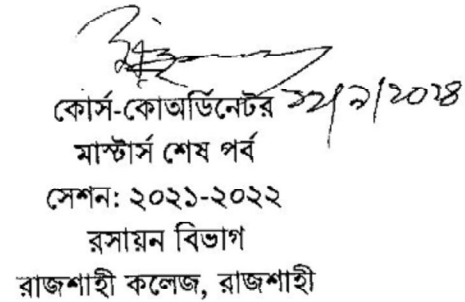 কোর্স-কোঅর্ডিনেটর
মাস্টার্স শেষ পর্ব
সেশন: ২০২১-২০২২
রসায়ন বিভাগ
রাজশাহী কলেজ, রাজশাহী